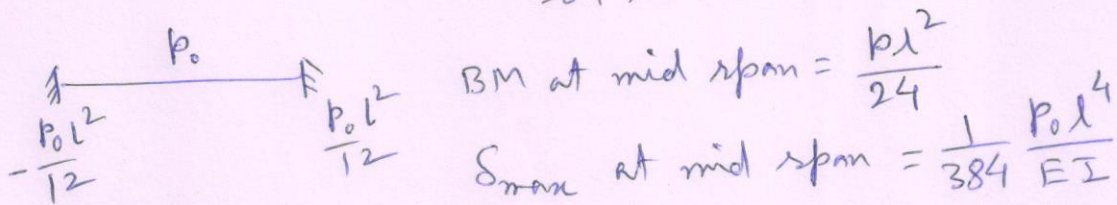 p₀
-p₀l²/12
p₀l²/12
BM at mid span = pl²/24
δmax at mid span = 1/384 p₀l⁴/EI